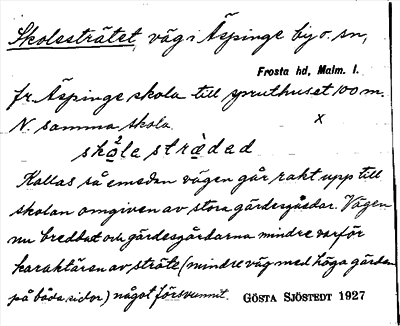 Skolesträtet, väg i Äspinge by o. sn,
Frosta hd, Malm. l.
fr. Äspinge skola till spruthuset 100 m.
N. samma skola. x
skå²la strädad
Kallas så emedan vägen går rakt upp till
skolan omgiven av stora gärdesgårdar. Vägen
nu breddat och gärdesgårdarna mindre varför
karaktären av sträte (mindre väg med höga gärden
på båda sidor) något försvunnit. GÖSTA SJÖSTEDT 1927